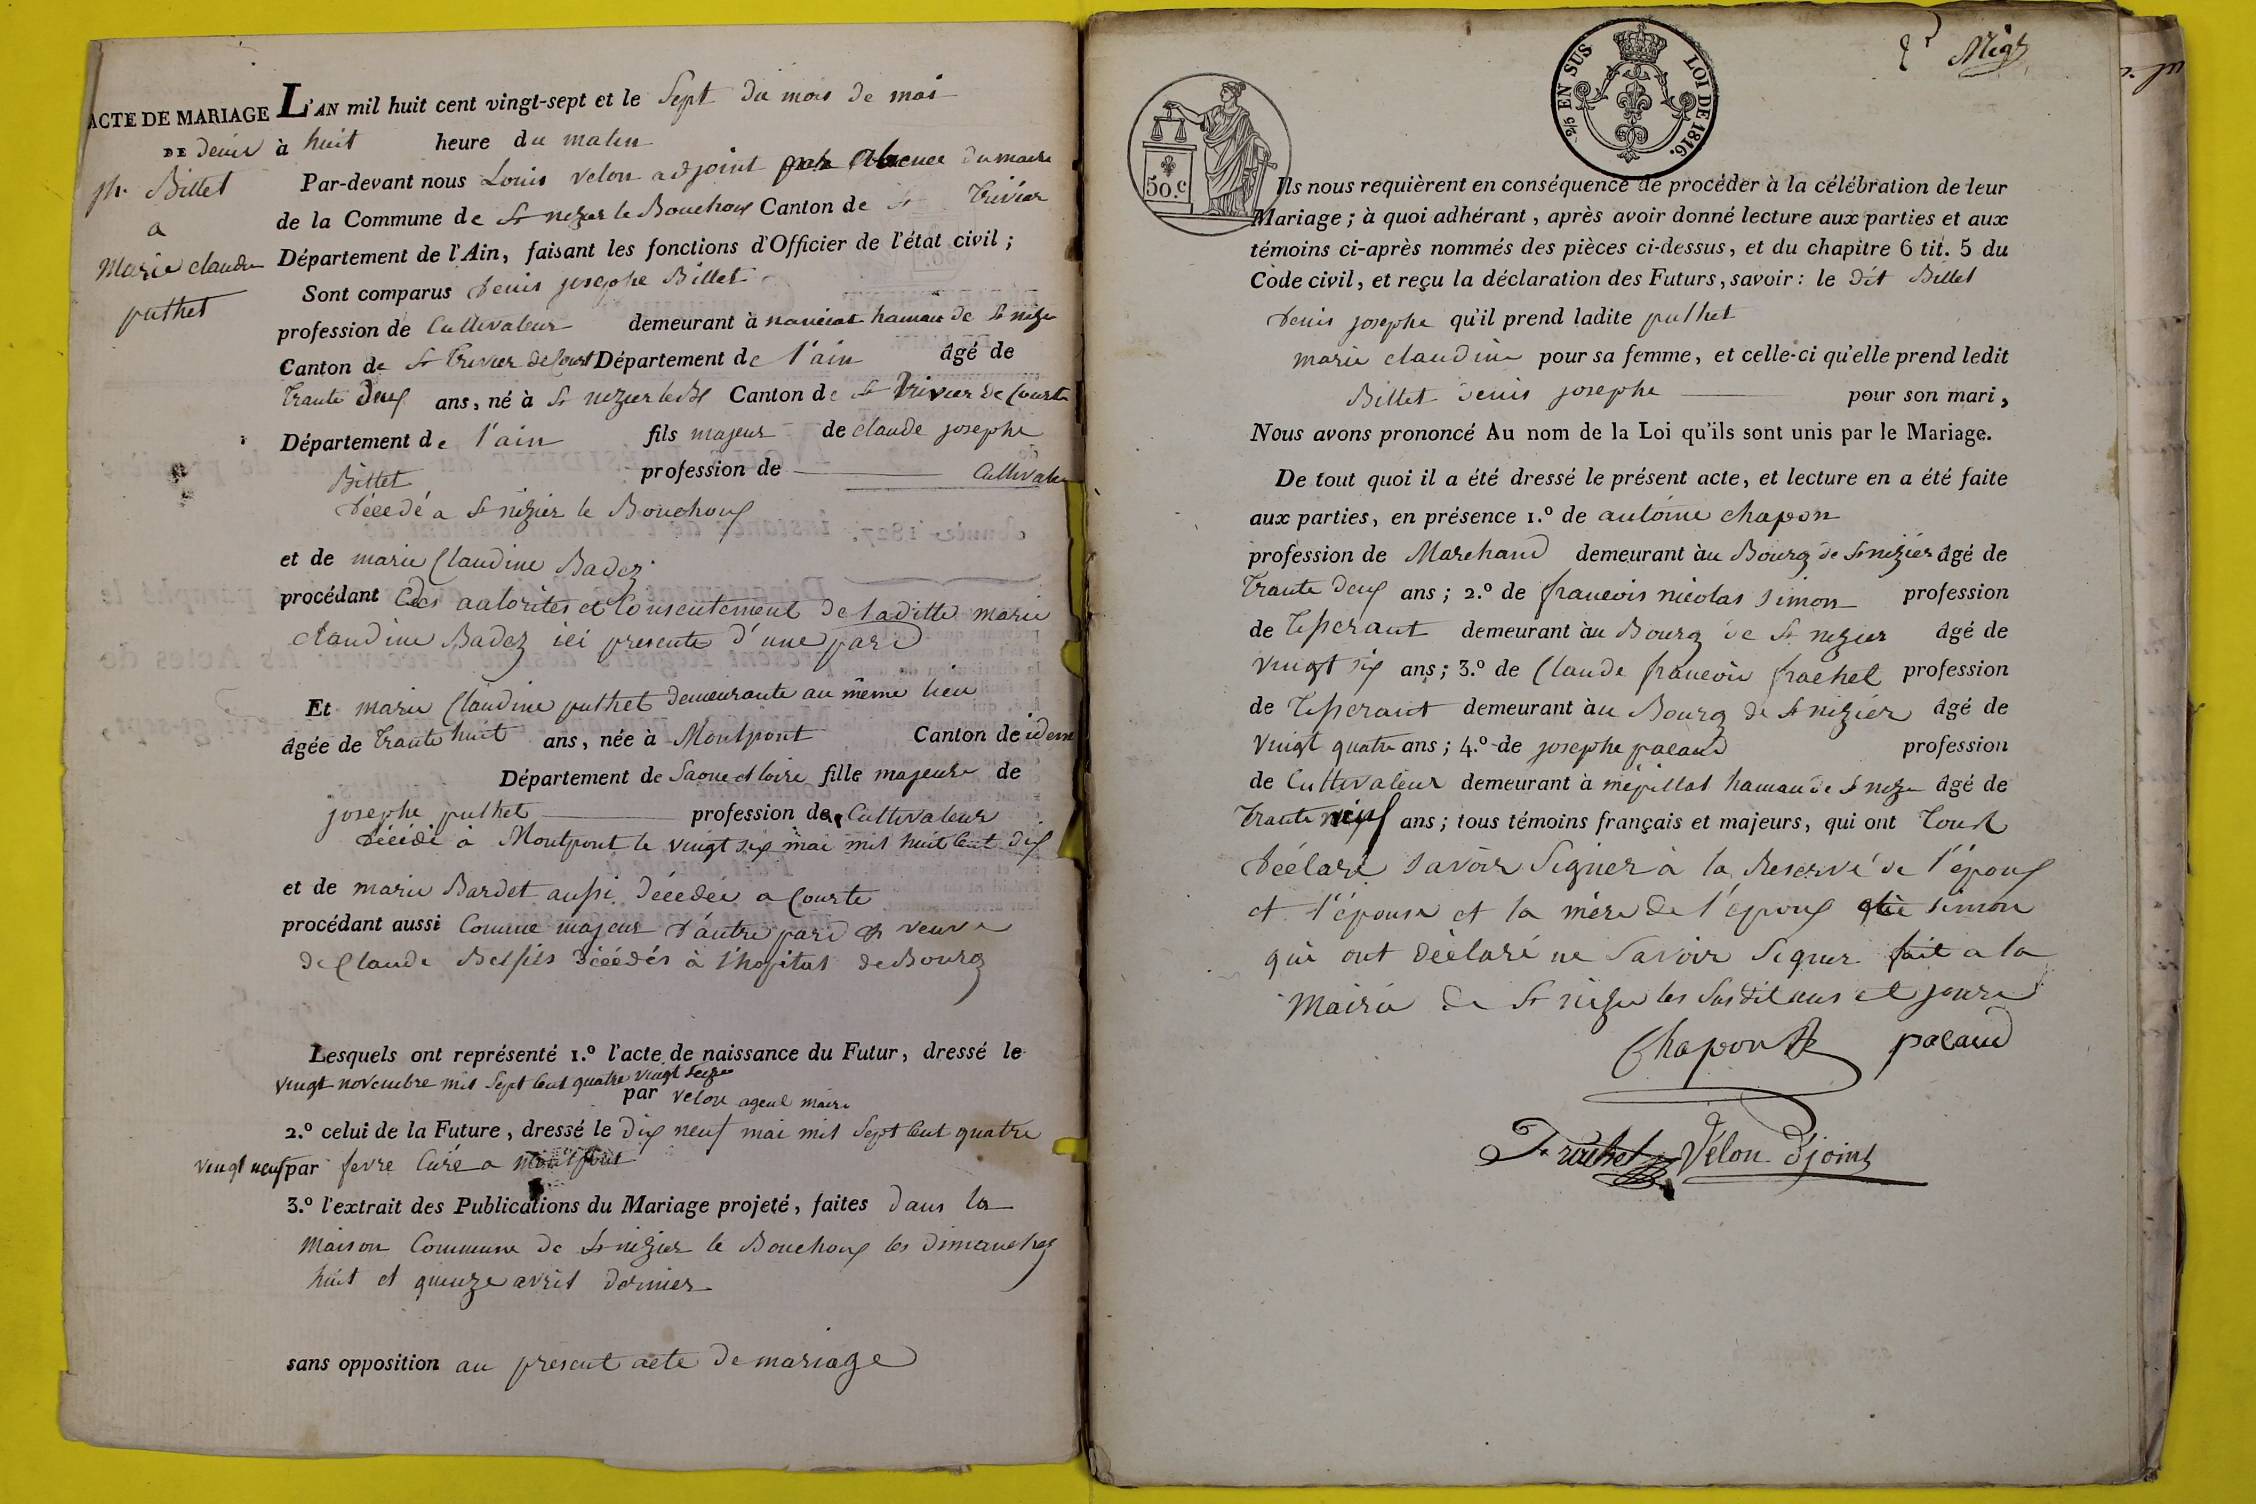 ACTE DE MARIAGE
DE denis
jph. Billet
a
Marie claudine
puthet
L'AN mil huit cent vingt-sept et le Sept du mois de mai
à huit heure du matin
Par-devant nous Louis velon adjoint par absence du maire
de la Commune de St nizier le Bouchoux Canton de St Trivier
Département de l'Ain, faisant les fonctions d'Officier de l'état civil ;
Sont comparus denis josephe Billet
profession de Cultivateur demeurant à hamau de St nizier
Canton de St Trivier de Court Département de l'ain âgé de
Trante deux ans, né à St nizier le Bx Canton de St Trivier de Courte
Département de l'ain fils majeur de claude josephe
Billet profession de Cultivateur
décedé a St nizier le Bouchoux
et de marie Claudine Badez
procédant des autorités et Consentement de laditte marie
claudine Badez ici presente d'une part
Et marie Claudine puthet demeurante au même lieu
âgée de Trante huit ans, née à Montpont Canton de idem
Département de Saone et loire fille majeure de
josephe puthet profession de Cultivateur
décédé à Montpont le vingt six mai mil huit Cent dix
et de marie Bardet aussi décedée a Courte
procédant aussi Comme majeur d'autre part et veuve
de Claude Belfils décédés à l'hopital de Bourg
Lesquels ont représenté 1.º l'acte de naissance du Futur, dressé le
vingt novembre mil Sept Cent quatre vingt Seize
par velon agent maire
2.º celui de la Future, dressé le dix neuf mai mil Sept Cent quatre
vingt neuf par fevre Curé a Montpont
3.º l'extrait des Publications du Mariage projeté, faites dans la
maison Commune de St nizier le Bouchoux les dimanches
huit et quinze avril dernier
sans opposition au présent acte de mariage
50.c
2/5 EN SUS LOI DE 1816.
Ils nous requièrent en conséquence de procéder à la célébration de leur
Mariage ; à quoi adhérant, après avoir donné lecture aux parties et aux
témoins ci-après nommés des pièces ci-dessus, et du chapitre 6 tit. 5 du
Code civil, et reçu la déclaration des Futurs, savoir : le dit Billet
denis josephe qu'il prend ladite puthet
marie claudine pour sa femme, et celle-ci qu'elle prend ledit
Billet denis josephe pour son mari,
Nous avons prononcé Au nom de la Loi qu'ils sont unis par le Mariage.
De tout quoi il a été dressé le présent acte, et lecture en a été faite
aux parties, en présence 1.º de antoine chapon
profession de Marchand demeurant àu Bourg de St nizier âgé de
Trante deux ans ; 2.º de francois nicolas simon profession
de Tisserant demeurant àu Bourg de St nizier âgé de
vingt six ans ; 3.º de Claude francois frachet profession
de Tisserant demeurant àu Bourg de St nizier âgé de
vingt quatre ans ; 4.º de josephe pacaud profession
de Cultivateur demeurant à mépillat hamau de St nizier âgé de
Trante neuf ans ; tous témoins français et majeurs, qui ont Tous
déclaré savoir Signer à la Reserve de l'époux
et l'épouse et la mère de l'époux simon
qui ont déclaré ne Savoir Signer fait a la
Mairie de St nizier les Susdit ans et jours
Chapon pacaud
Frachet Vélon djoint